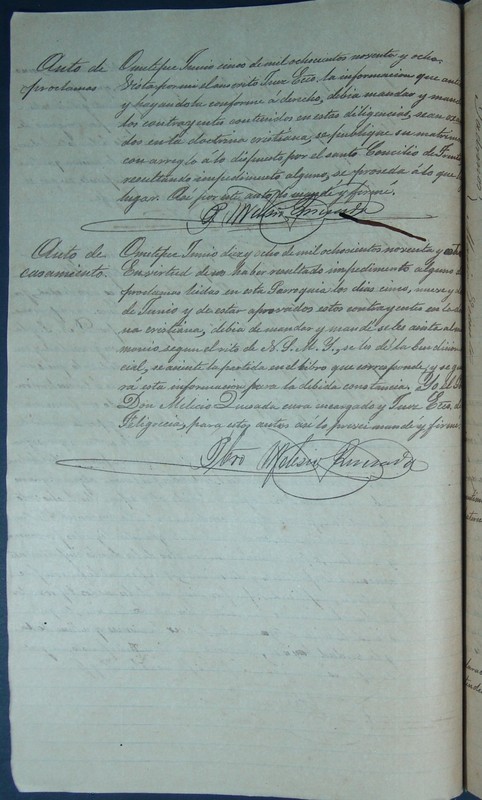 Auto de
proclamas
Ometepe Junio cinco de mil ochocientos noventa y ocho
Vista por mi el infrascrito Juez Eco. la informacion que ante
y hayandola conforme á derecho, debia mandar y mandé
los contrayentes contenidos en estas diligencias, sean
dos en la doctrina cristiana, se publique su matrim
con arreglo a lo dispuesto por el santo Concilio de Trento
resultando impedimento alguno, se proseda á lo que
lugar. Asi por este auto lo mandé y firmé.
P. Melisio Quesada
Auto de
casamiento.
Ometepe Junio diez y ocho de mil ochosientos noventa y ocho
En virtud de no haber resultado impedimento alguno
proclamas leidas en esta Parroquia los dias cinco, nueve y
de Junio y de estar aprovados estos contrayentes en la do
na cristiana, debia de mandar y mandé se les asista al
monio segun el rito de N. S. M. Y., se les dé la bendicion
cial, se asiente la partida en el libro que corresponde, y se
rá esta informacion para la debida constancia. Yo, el
Don Melicio Quesada cura encargado y Juez Eco. de
Feligrecia, para estos autos asi lo proveí mandé y firmé
Pbro Melisio Quesada